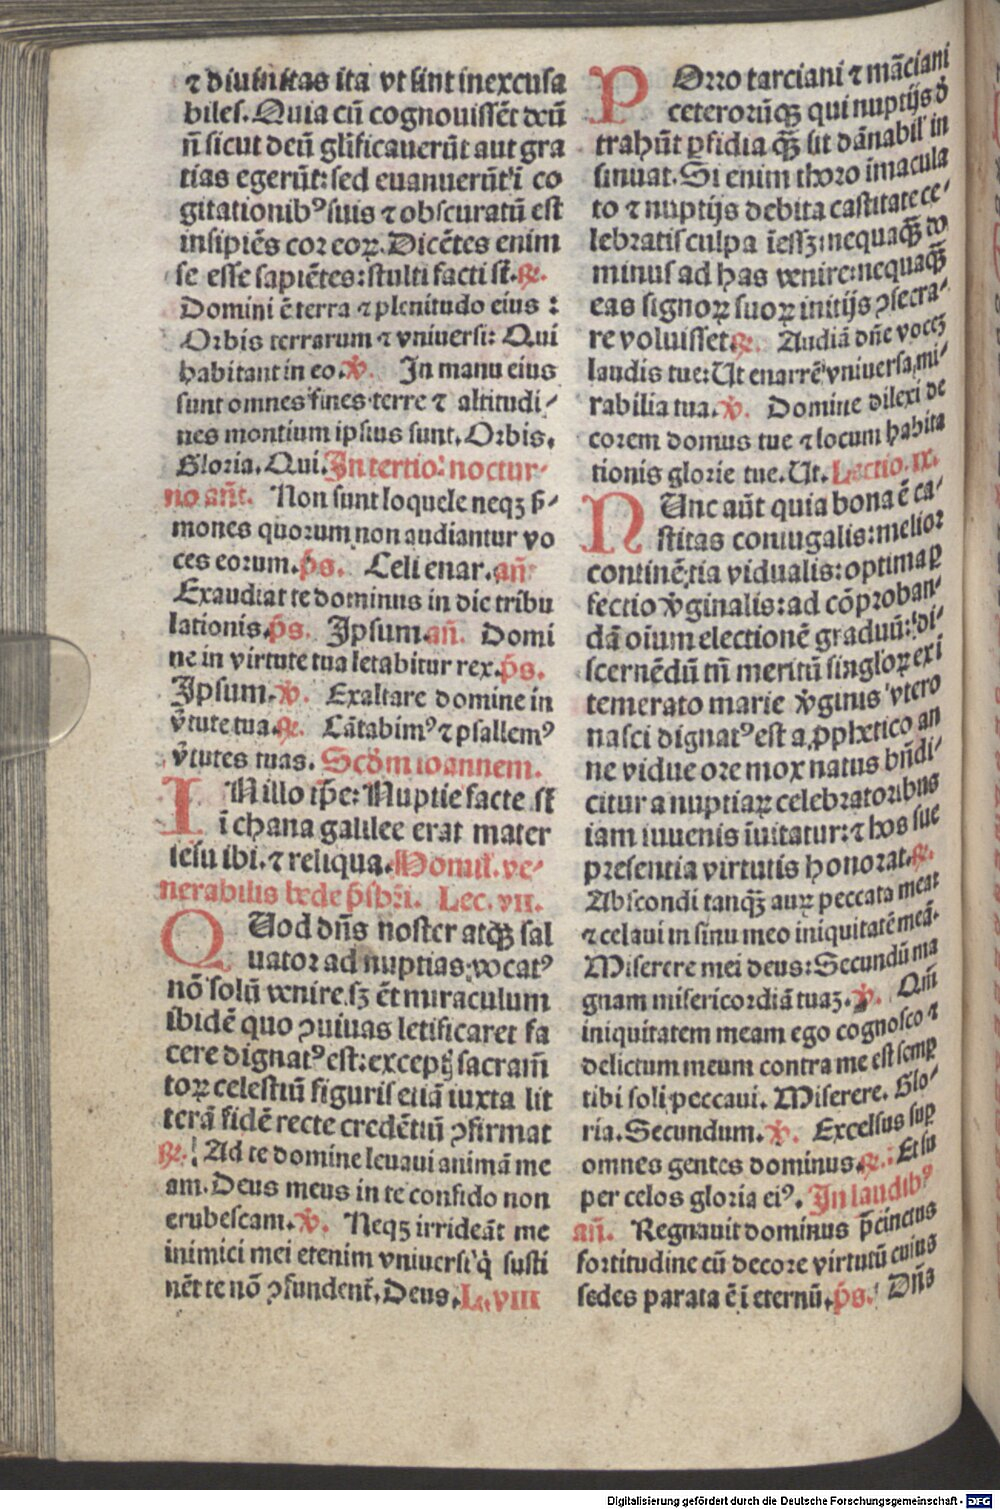 ⁊ diuinitas ita vt sint inexcusa
biles. Quia cū cognouissēt deū
n̄ sicut deū gl̄ificauerūt aut gra
tias egerūt: sed euanuerūt ī co
gitationibꝰ suis ⁊ obscuratū est
insipiēs cor eoꝝ. Dicētes enim
se esse sapiētes: stulti facti st̄. ℞.
Domini ē terra ⁊ plenitudo eius :
Orbis terrarum ⁊ vniuersi: Qui
habitant in eo. ℣. In manu eius
sunt omnes fines terre ⁊ altitudi⸗
nes montium ipsius sunt. Orbis.
Gloria. Qui. In tertio: noctur⸗
no an̄t. Non sunt loquele neqꝫ s̄⸗
mones quorum non audiantur vo
ces eorum. p̄s. Celi enar. an̄
Exaudiat te dominus in die tribu
lationis. p̄s. Ipsum. an̄. Domi
ne in virtute tua letabitur rex. p̄s.
Ipsum. ℣. Exaltare domine in
v̄tute tua. ℞. Cātabimꝰ ⁊ psallemꝰ
v̄tutes tuas. Scd̄m ioannem.
IN illo tp̄e: Nuptie facte st̄
ī chana galilee erat mater
iesu ibi. ⁊ reliqua. Homil̄. ve⸗
nerabilis bede p̄sbr̄i. Lec. vii.
QUod dn̄s noster atqꝫ sal
uator ad nuptias vocatꝰ
nō solū venire sꝫ ēt miraculum
ibidē quo ꝯuiuas letificaret fa
cere dignatꝰ est: exceptꝭ sacram̄
toꝝ celestiū figuris etiā iuxta lit
terā fidē recte credētiū ꝯfirmat
℞. Ad te domine leuaui animā me
am. Deus meus in te confido non
erubescam. ℣. Neqꝫ irrideāt me
inimici mei etenim vniuersi q̇ susti
nēt te nō ꝯfundent̄. Deus. L. VIII
POrro tarciani ⁊ mārciani
ceterorūqꝫ qui nuptijs d̄
trahūt ꝑfidia qꝫ̄ sit dānabil̄ in
sinuat. Si enim thoro imacula
to ⁊ nuptijs debita castitate ce⸗
lebratis culpa īessꝫ: nequaqꝫ̄ do
minus ad has venire: nequaqꝫ̄
eas signoꝝ suoꝝ initijs ꝯsecra⸗
re voluisset. ℞. Audiā dn̄e vocē
laudis tue: Ut enarrē vniuersa mi⸗
rabilia tua. ℣. Domine dilexi de
corem domus tue ⁊ locum habita
tionis glorie tue. Ut. Lectio. IX.
NUnc aūt quia bona ē ca⸗
stitas coniugalis: melior
continētia vidualis: optima ꝑ
fectio v̄ginalis: ad cōproban⸗
dā oīum electionē graduū: di⸗
scernēdū tn̄ meritū singloꝝ exi
temerato marie v̄ginis vtero
nasci dignatꝰ est a ꝓphetico an
ne vidue ore mox natus bn̄di⸗
citur a nuptiaꝝ celebratoribus
iam iuuenis īuitatur: ⁊ hos sue
presentia virtutis honorat. ℞.
Abscondi tanqꝫ̄ auꝝ peccata mea
⁊ celaui in sinu meo iniquitatē meā.
Miserere mei deus: Secundū ma
gnam misericordiā tuaꝫ. ℣. Qm̄
iniquitatem meam ego cognosco ⁊
delictum meum contra me est semꝑ
tibi soli peccaui. Miserere. Glo⸗
ria. Secundum. ℣. Excelsus suꝑ
omnes gentes dominus. ℞. Et su
per celos gloria eiꝰ. In laudibꝰ
an̄. Regnauit dominus p̄cinctus
fortitudine cū decore virtutū cuius
sedes parata ē ī eternū. p̄s. Dn̄s
Digitalisierung gefördert durch die Deutsche Forschungsgemeinschaft - DFG